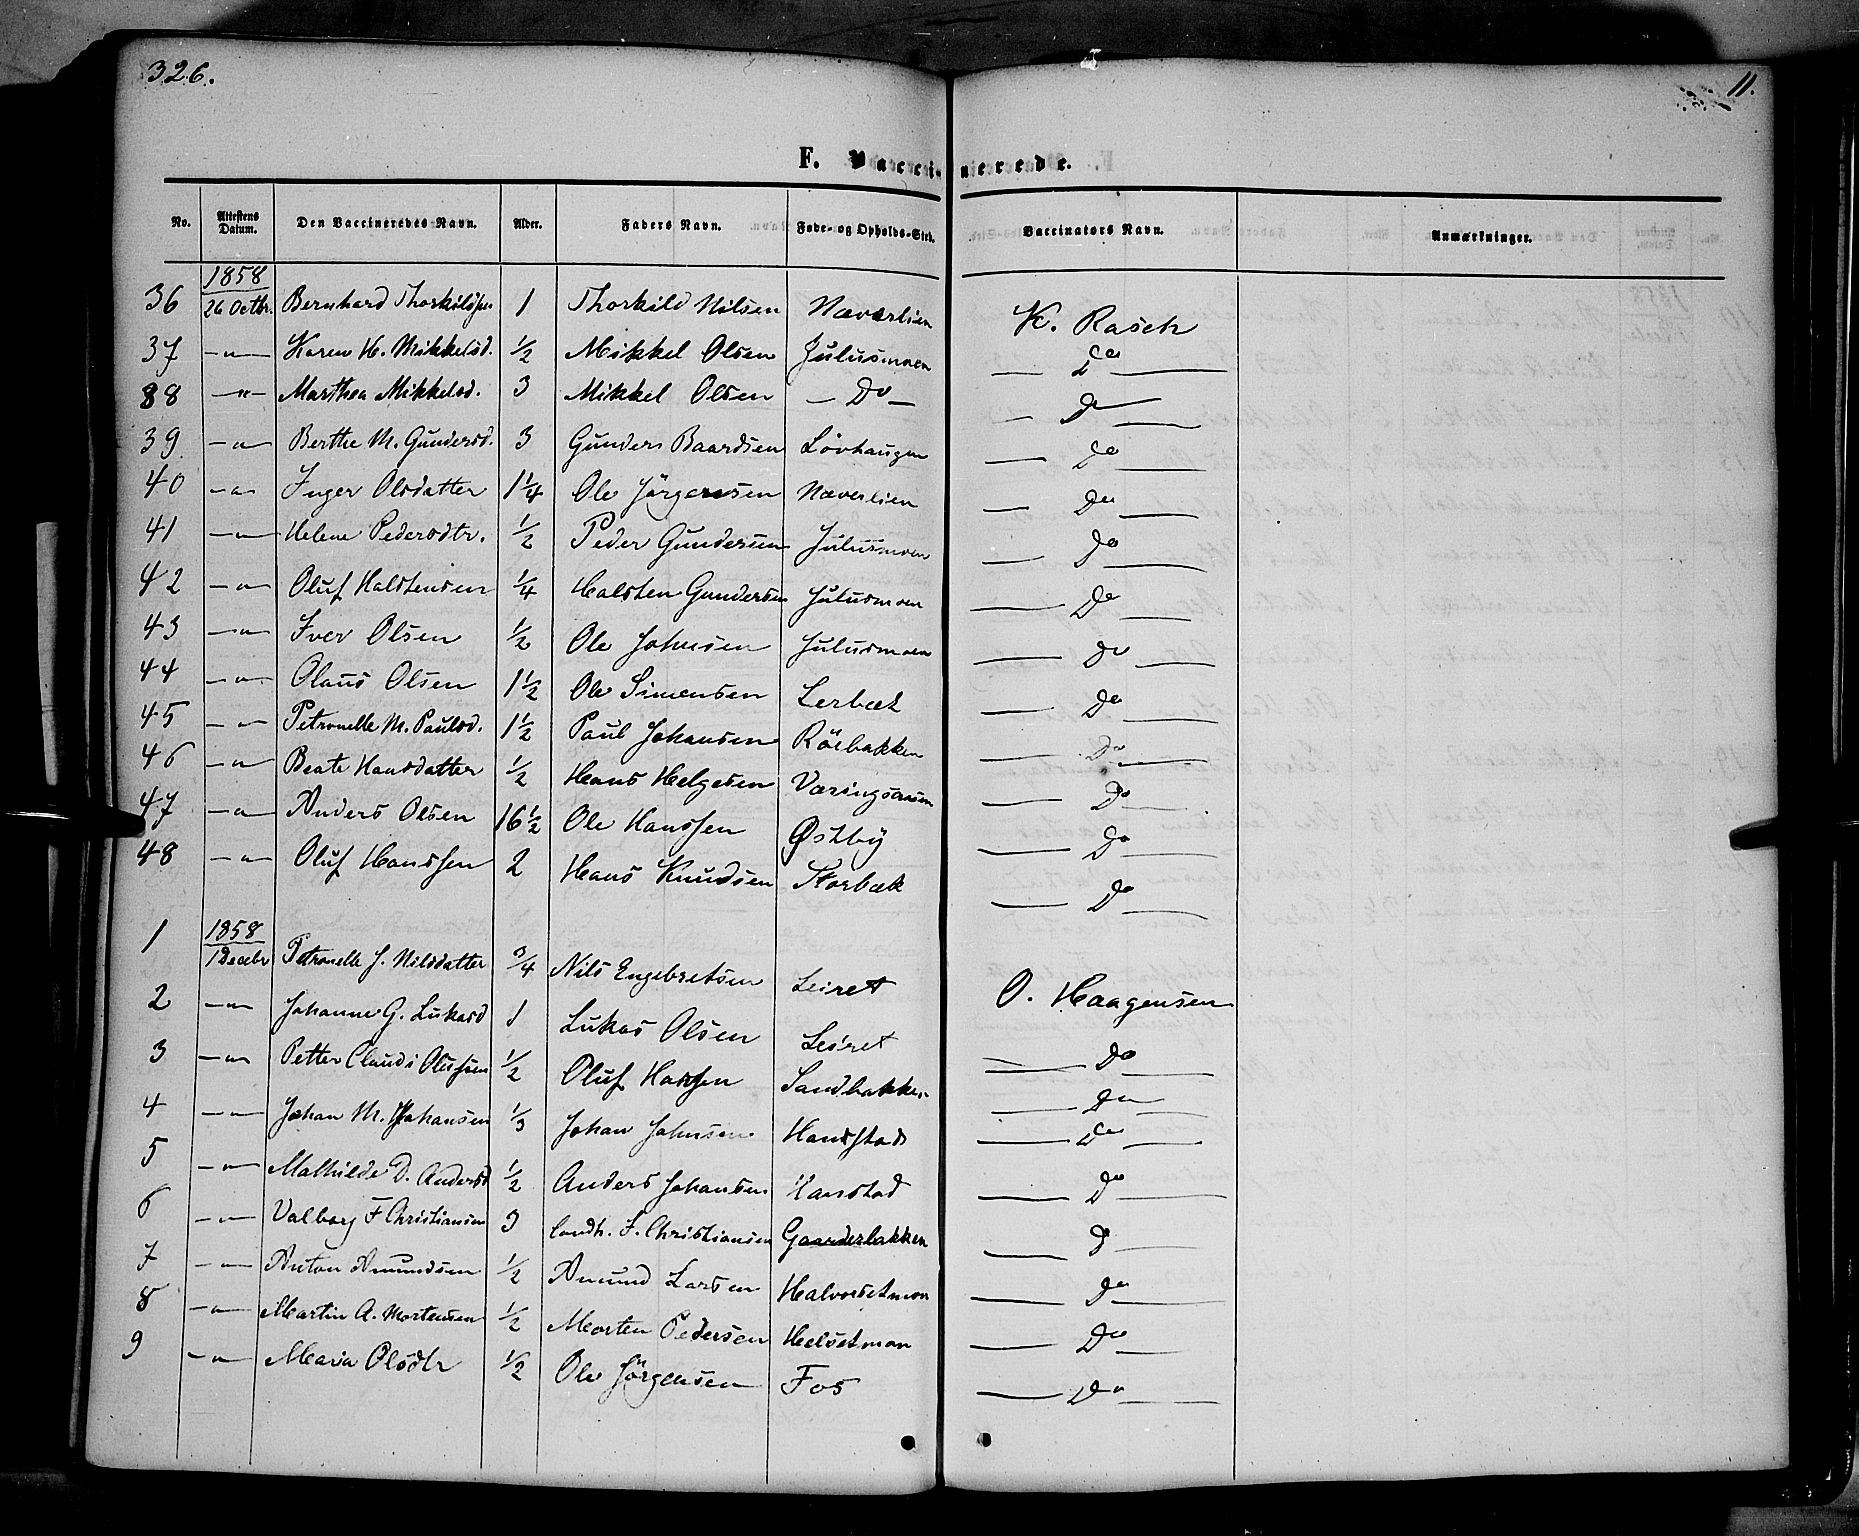 326.
11.
F. Vaccinerede.
No. Attestens Datum. Den Vaccineredes Navn. Alder. Faders Navn. Føde- og Opholds-Sted. Vaccinators Navn. Anmærkninger.
1858
36 26 Octbr. Bernhard Thorkildsen 1 Thorkild Nilsen Næverlien K. Rasch
37 -"- Karen H. Mikkelsd. 1/2 Mikkel Olsen Julusmoen Do
38 -"- Marthea Mikkelsd. 3 Mikkel Olsen - Do - Do
39 -"- Berthe M. Gundersd. 3 Gunder Baardsen Lövhaugen Do
40 -"- Inger Olsdatter 1 1/4 Ole Jörgensen Næverlien Do
41 -"- Helene Pedersdtr. 1/2 Peder Gundersen Julusmoen Do
42 -"- Oluf Halstensen 1/4 Halsten Gundersen Julusmoen Do
43 -"- Iver Olsen 1/2 Ole Johnsen Julusmoen Do
44 -"- Olaus Olsen 1 1/2 Ole Simensen Lerbæk Do
45 -"- Petronelle M. Paulsd. 1 1/2 Paul Johansen Röebakken Do
46 -"- Beate Hansdatter 1/2 Hans Helgesen Væringsaasen Do
47 -"- Anders Olsen 16 1/2 Ole Hanssen Østby Do
48 -"- Oluf Hanssen 2 Hans Knudsen Storbæk Do
1858
1 1 Decebr Petronelle J. Nilsdatter 3/4 Nils Engebretsen Leiret O. Haagensen
2 -"- Johanne G. Lukasd 1 Lukas Olsen Leiret Do
3 -"- Petter Claudi Olufsen 1/2 Oluf Hansen Sandbakken Do
4 -"- Johan M. Johansen 1/3 Johan Johnsen Handstad Do
5 -"- Mathilde D. Andersd 1/2 Anders Johansen Hanstad Do
6 -"- Valborg F Christiansen 3 Landh. F. Christiansen Gaarderbakken Do
7 -"- Anton Amundsen 1/2 Amund Larsen Halvorsetmoen Do
8 -"- Martin A. Mortensen 1/2 Morten Pedersen Helsetmoen Do
9 -"- Maria Olsdtr 1/2 Ole Jörgensen Fos Do